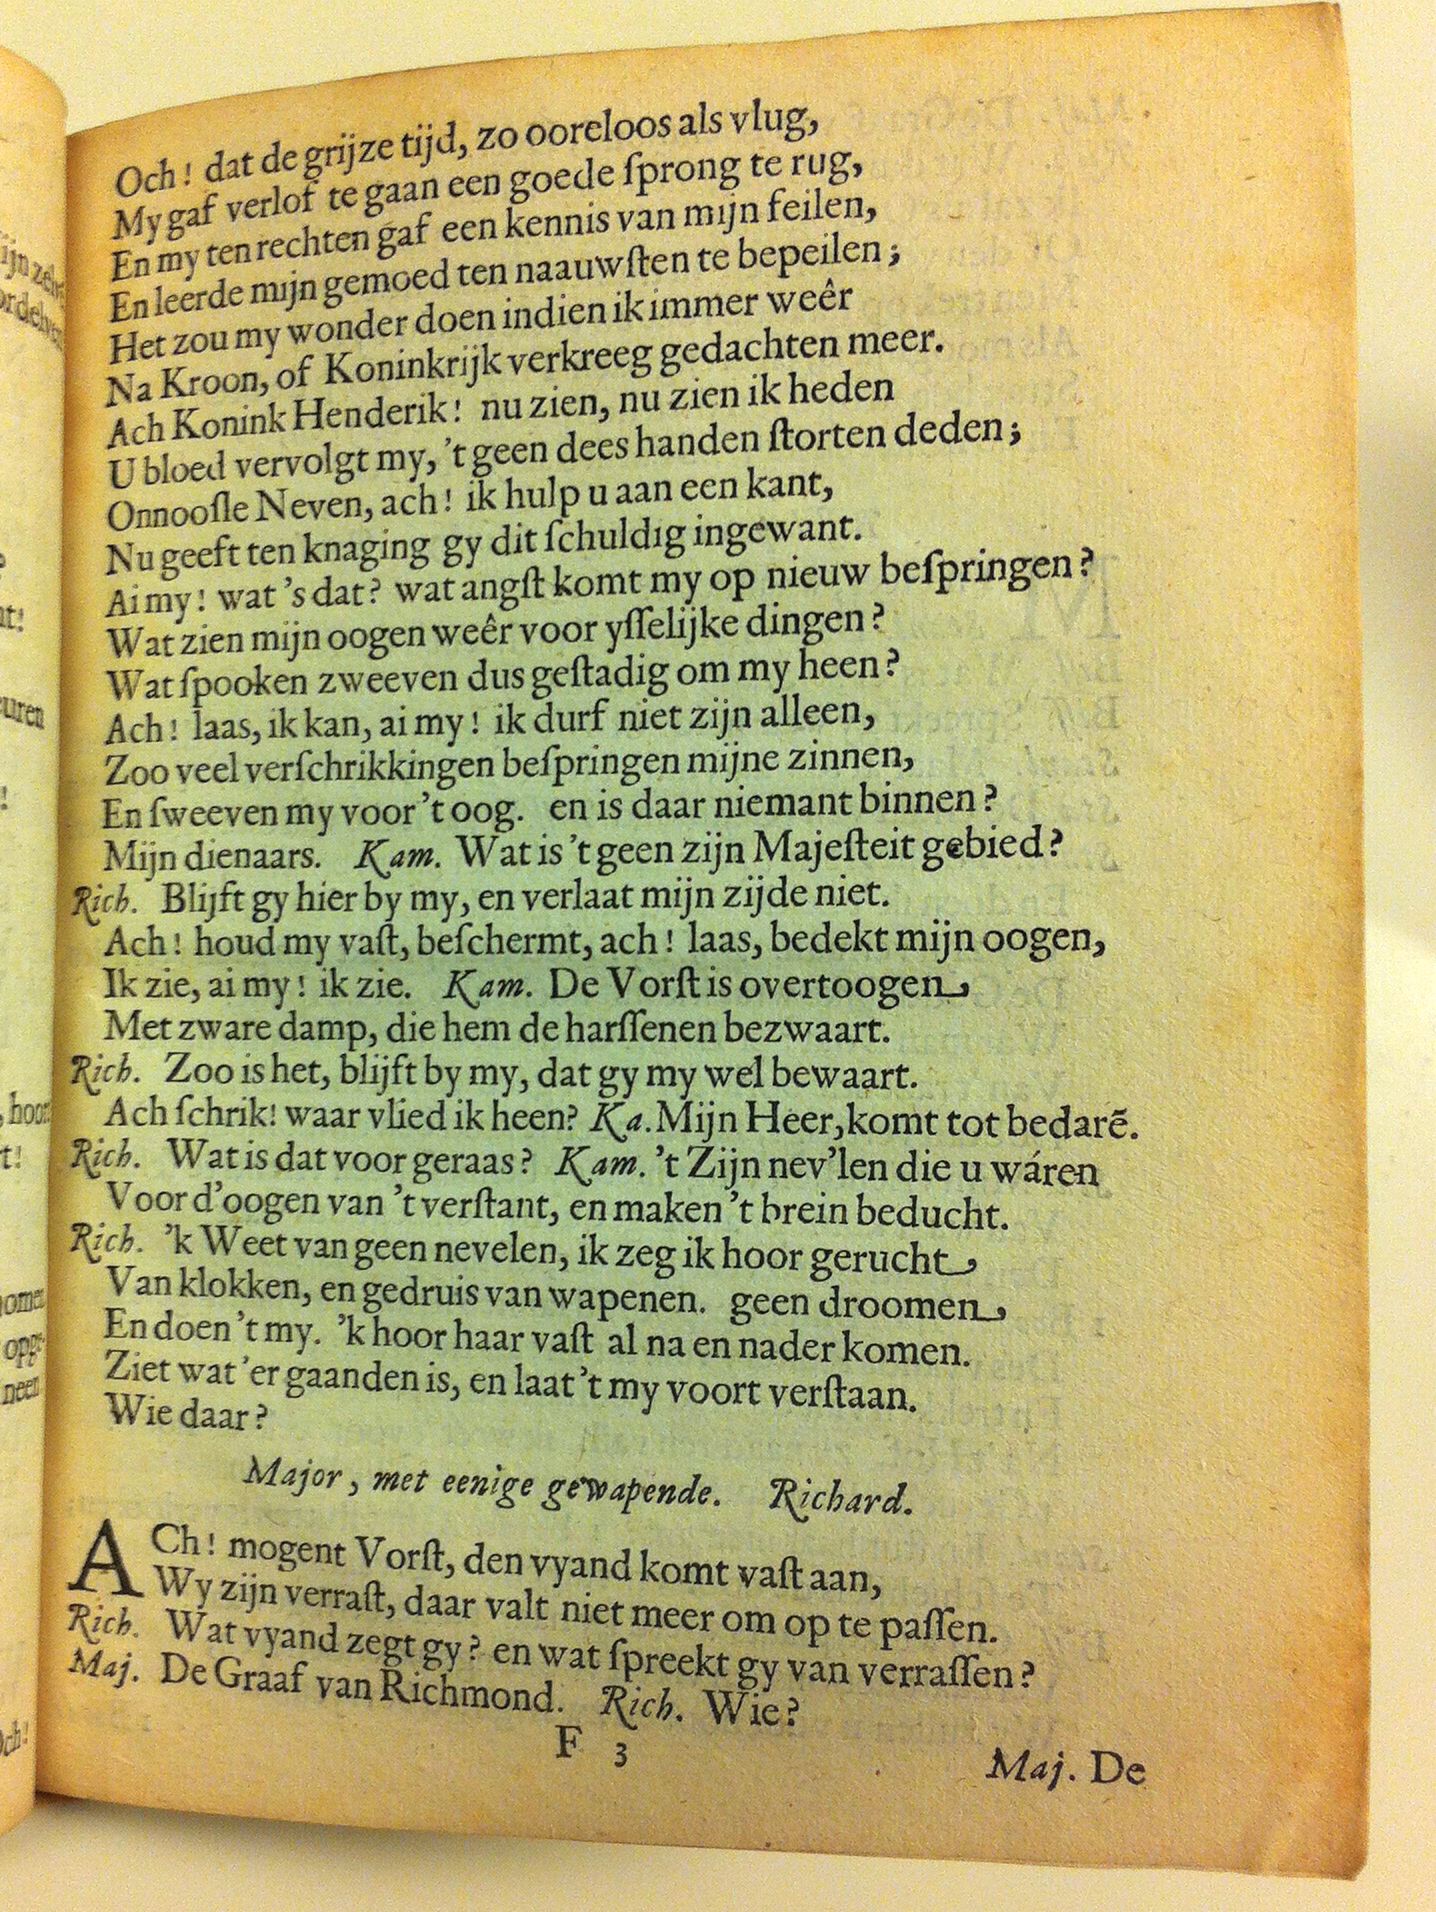 Och! dat de grijze tijd, zo ooreloos als vlug,
My gaf verlof te gaan een goede ſprong te rug,
En my ten rechten gaf een kennis van mijn feilen,
En leerde mijn gemoed ten naauwſten te bepeilen;
Het zou my wonder doen indien ik immer weêr
Na Kroon, of Koninkrijk verkreeg gedachten meer.
Ach Konink Henderik! nu zien, nu zien ik heden
U bloed vervolgt my, 't geen dees handen ſtorten deden;
Onnooſle Neven, ach! ik hulp u aan een kant,
Nu geeft ten knaging gy dit ſchuldig ingewant.
Ai my! wat 's dat? wat angſt komt my op nieuw beſpringen?
Wat zien mijn oogen weêr voor yſſelijke dingen?
Wat ſpooken zweeven dus geſtadig om my heen?
Ach! laas, ik kan, ai my! ik durf niet zijn alleen,
Zoo veel verſchrikkingen beſpringen mijne zinnen,
En ſweeven my voor 't oog. en is daar niemant binnen?
Mijn dienaars. Kam. Wat is 't geen zijn Majeſteit gebied?
Rich. Blijft gy hier by my, en verlaat mijn zijde niet.
Ach! houd my vaſt, beſchermt, ach! laas, bedekt mijn oogen,
Ik zie, ai my! ik zie. Kam. De Vorſt is overtoogen
Met zware damp, die hem de harſſenen bezwaart.
Rich. Zoo is het, blijft by my, dat gy my wel bewaart.
Ach ſchrik! waar vlied ik heen? Ka. Mijn Heer, komt tot bedarẽ.
Rich. Wat is dat voor geraas? Kam. 't Zijn nev'len die u wáren
Voor d'oogen van 't verſtant, en maken 't brein beducht.
Rich. 'k Weet van geen nevelen, ik zeg ik hoor gerucht
Van klokken, en gedruis van wapenen. geen droomen
En doen 't my. 'k hoor haar vaſt al na en nader komen.
Ziet wat 'er gaanden is, en laat 't my voort verſtaan.
Wie daar?
Major, met eenige gewapende. Richard.
ACh! mogent Vorſt, den vyand komt vaſt aan,
Wy zijn verraſt, daar valt niet meer om op te paſſen.
Rich. Wat vyand zegt gy? en wat ſpreekt gy van verraſſen?
Maj. De Graaf van Richmond. Rich. Wie?
F 3
Maj. De